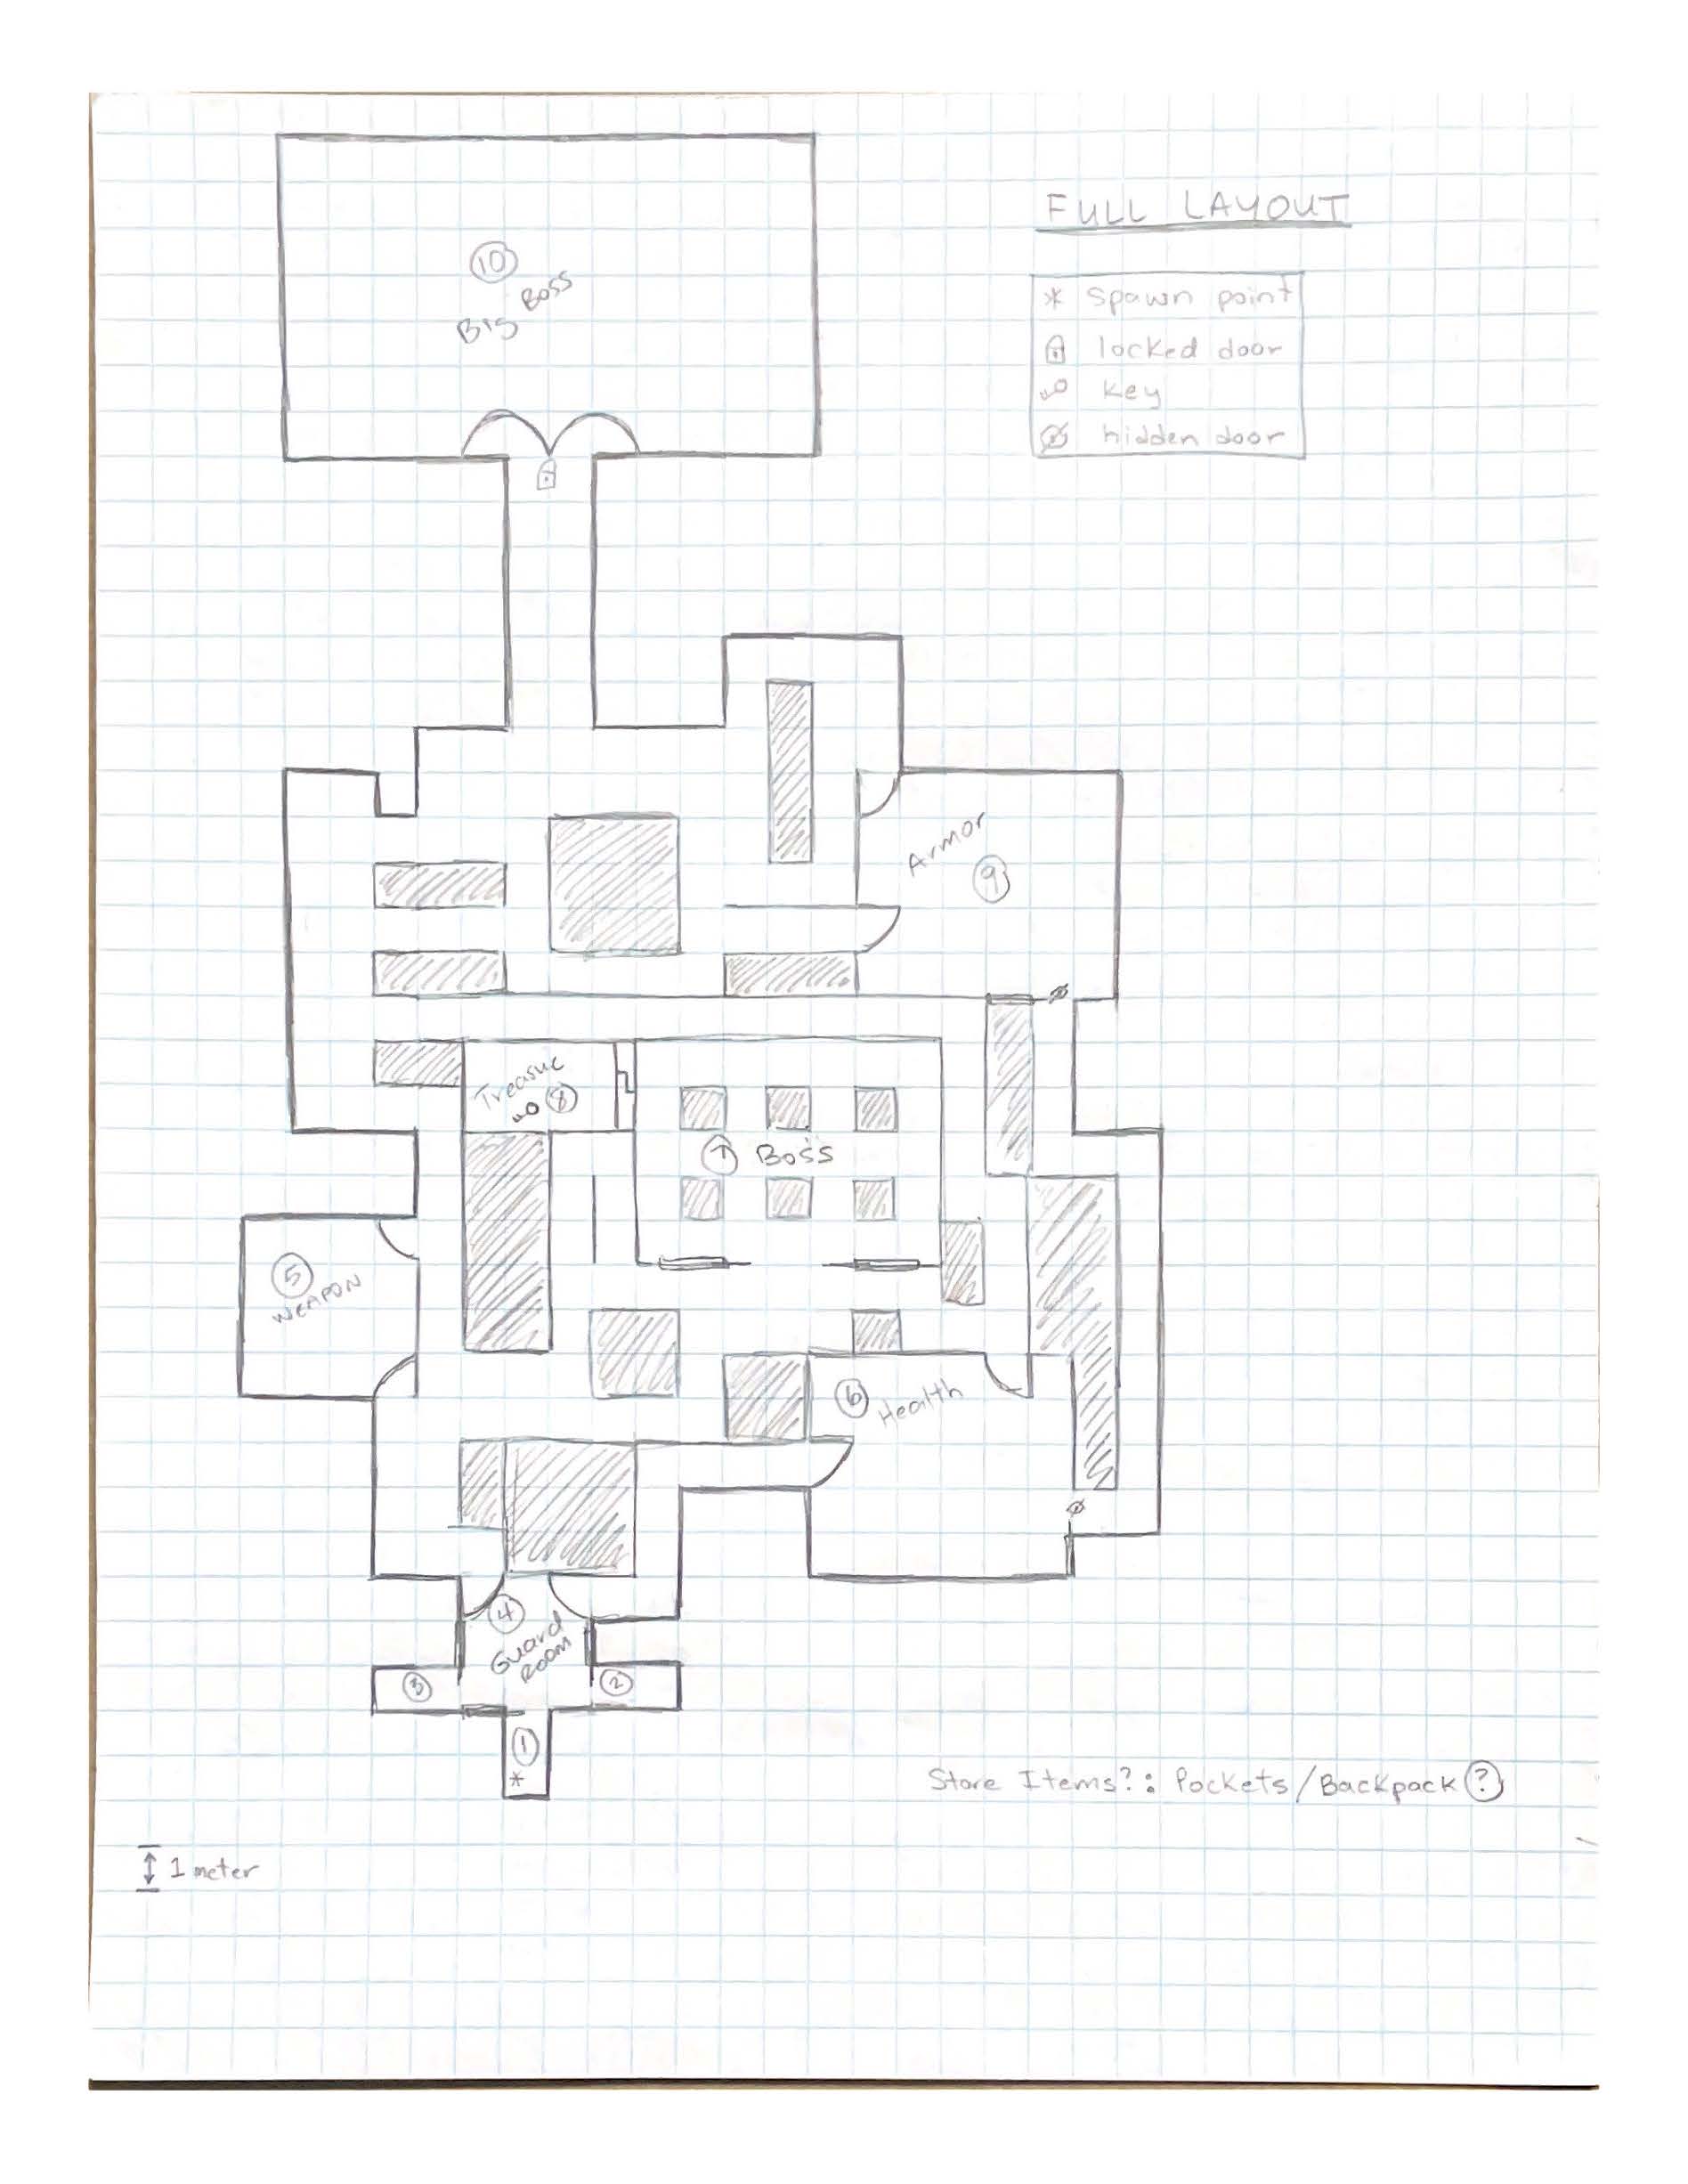 FULL LAYOUT
* spawn point
locked door
key
hidden door
10
Big Boss
Armor
9
Treasuc
8
7 Boss
5
WEAPON
6
Health
4
Guard
Room
3
2
1
*
Store Items?: Pockets/Backpack ?
1 meter